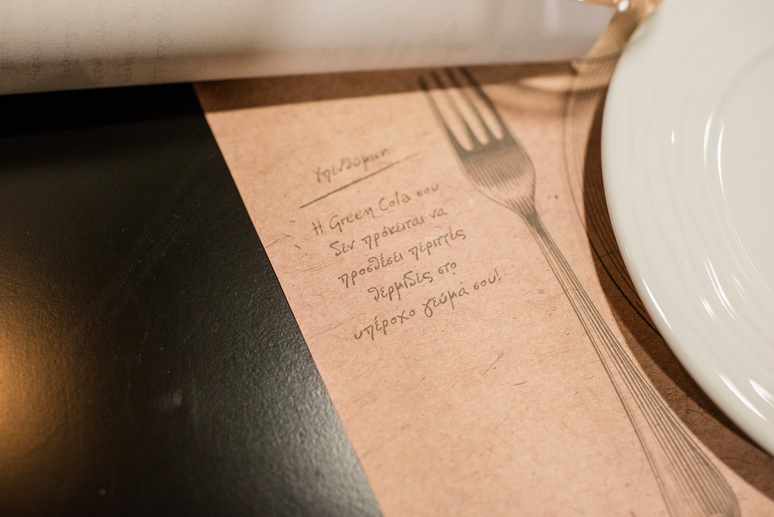 Υπενθύμιση
Η Green Cola σου
δεν πρόκειται να
προσθέσει περιττές
θερμίδες στο
υπέροχο γεύμα σου!